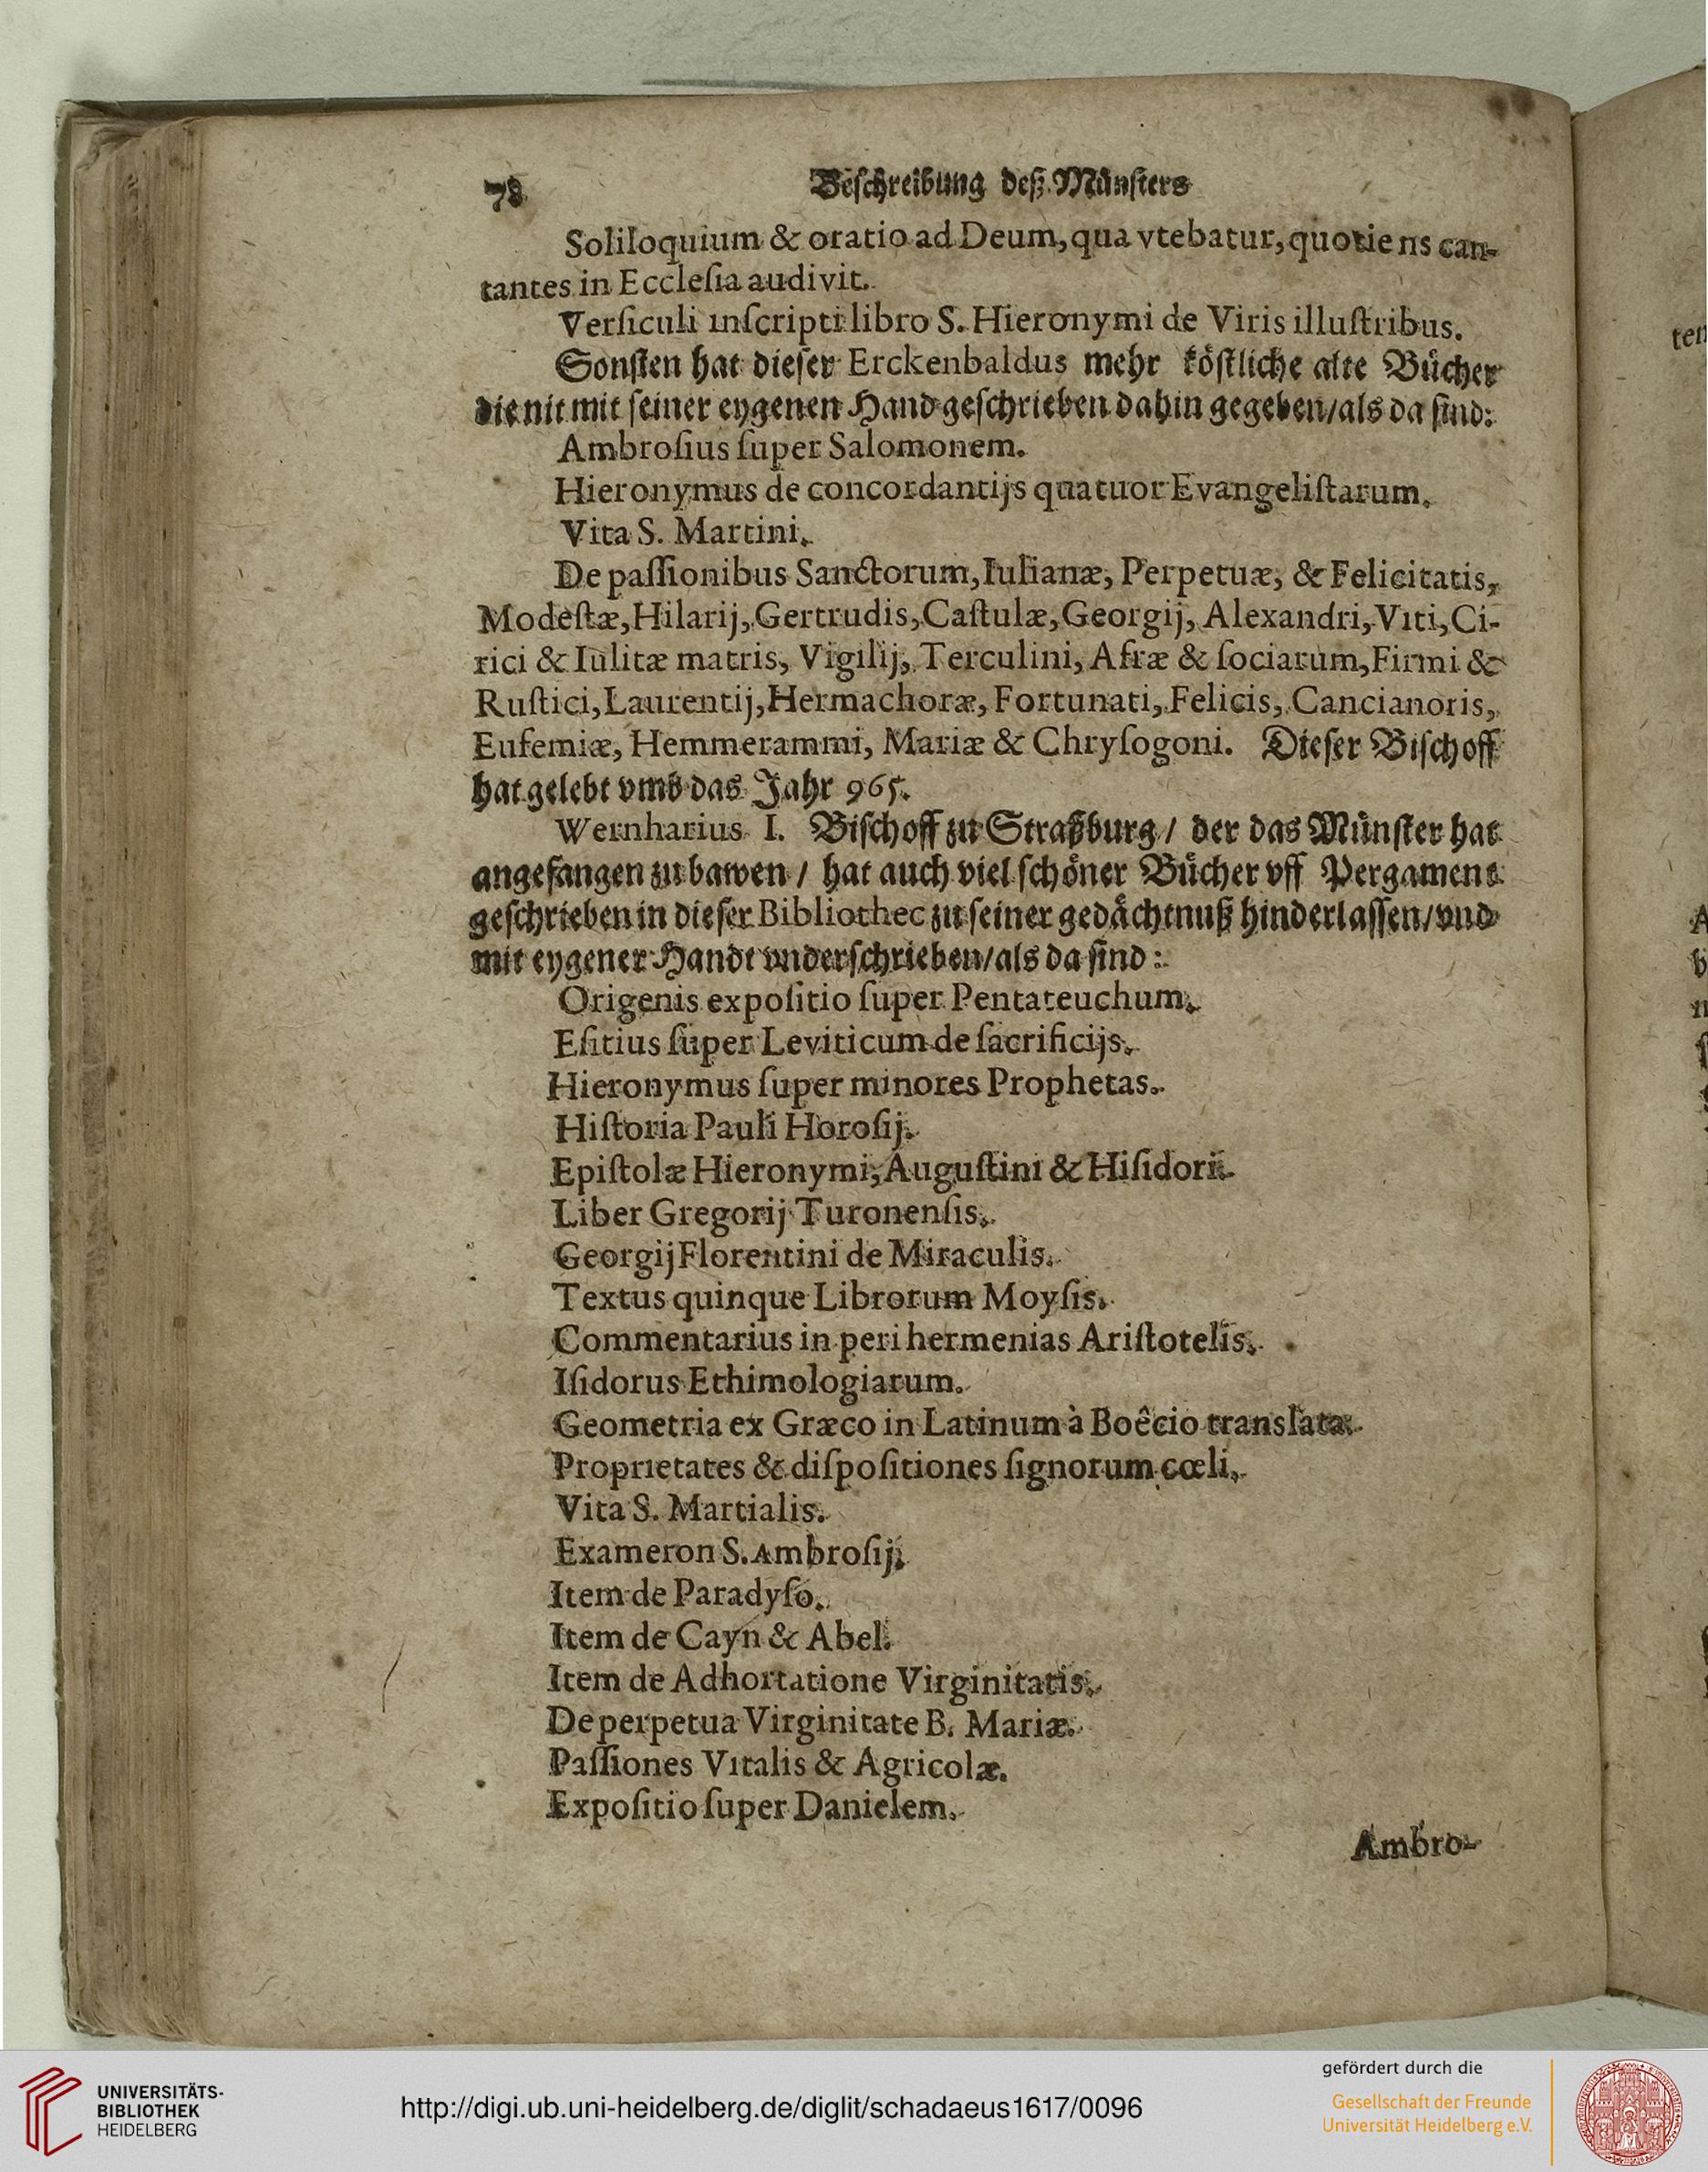 78 Beſchreibung deß Münſters
Soliloquium & oratio ad Deum, qua vtebatur, quotiens can-
tantes in Eccleſia audivit.
Verſiculi inſcripti libro S. Hieronymi de Viris illuſtribus.
Sonſten hat dieſer Erckenbaldus mehr köſtliche alte Bücher
die nit mit ſeiner eygenen Hand geſchrieben dahin gegeben / als da ſind:
Ambroſius ſuper Salomonem.
Hieronymus de concordantijs quatuor Evangeliſtarum.
Vita S. Martini.
De paſſionibus Sanctorum, Iulianæ, Perpetuæ, & Felicitatis,
Modeſtæ, Hilarij, Gertrudis, Caſtulæ, Georgij, Alexandri, Viti, Ci-
rici & Iulitæ matris, Vigilij, Terculini, Afræ & ſociarum, Firmi &
Ruſtici, Laurentij, Hermachoræ, Fortunati, Felicis, Cancianoris,
Eufemiæ, Hemmerammi, Mariæ & Chryſogoni. Dieſer Biſchoff
hat gelebt vmb das Jahr 965.
Wernharius I. Biſchoff zu Straßburg / der das Münſter hat
angefangen zu bawen / hat auch viel ſchöner Bücher vff Pergament
geſchrieben in dieſer Bibliothec zu ſeiner gedächtnuß hinderlaſſen / vnd
mit eygener Handt vnderſchrieben / als da ſind:
Origenis expoſitio ſuper Pentateuchum.
Eſitius ſuper Leviticum de ſacrificijs.
Hieronymus ſuper minores Prophetas.
Hiſtoria Pauli Horoſij.
Epiſtolæ Hieronymi, Auguſtini & Hiſidori.
Liber Gregorij Turonenſis.
Georgij Florentini de Miraculis.
Textus quinque Librorum Moyſis.
Commentarius in peri hermenias Ariſtotelis.
Iſidorus Ethimologiarum.
Geometria ex Græco in Latinum à Boêcio translata.
Proprietates & diſpoſitiones ſignorum cœli.
Vita S. Martialis.
Exameron S. Ambroſij.
Item de Paradyſo.
Item de Cayn & Abel.
Item de Adhortatione Virginitatis.
De perpetua Virginitate B. Mariæ.
Paſſiones Vitalis & Agricolæ.
Expoſitio ſuper Danielem.
Ambro-
UNIVERSITÄTS-
BIBLIOTHEK
HEIDELBERG
http://digi.ub.uni-heidelberg.de/diglit/schadaeus1617/0096
gefördert durch die
Gesellschaft der Freunde
Universität Heidelberg e.V.